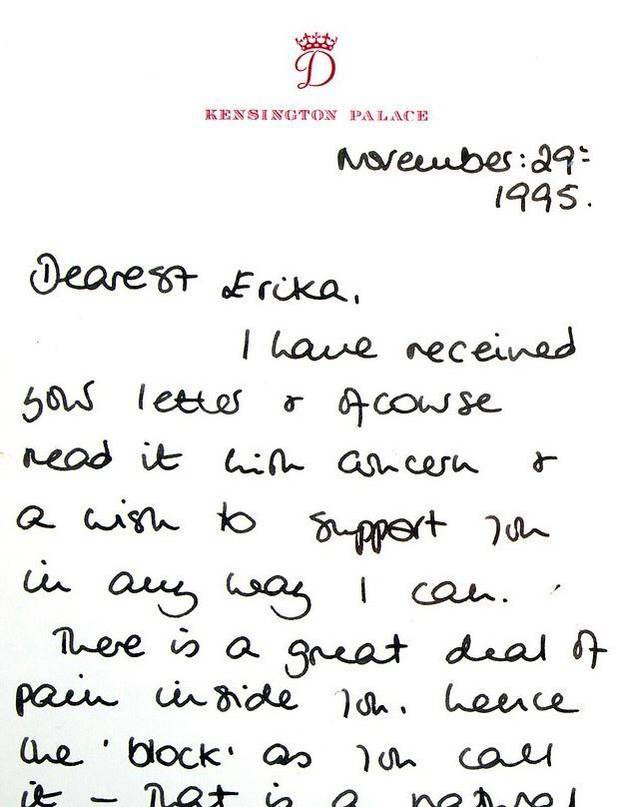 D
KENSINGTON PALACE
November: 29th
1995.
Dearest Erika,
I have received
your letter & ofcourse
read it with concern &
a wish to support you
in any way I can.
There is a great deal of
pain inside you, hence
the 'block' as you call
it - That is a natural